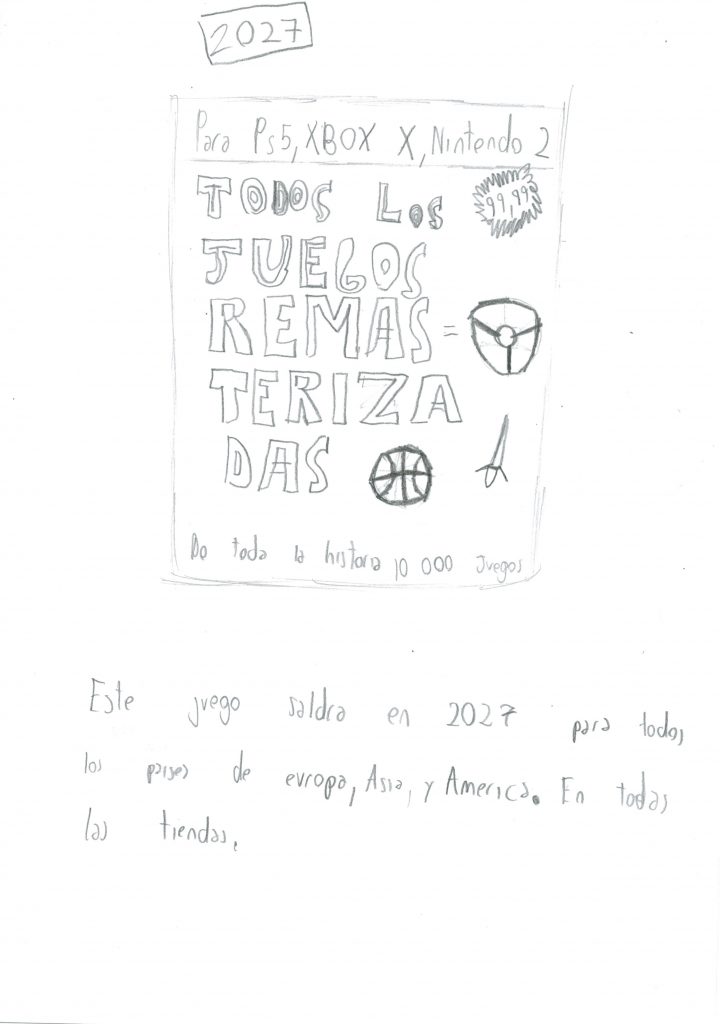 2027
Para Ps5, XBOX X, Nintendo 2
TODOS LOS
99,99
JUEGOS
REMAS =
TERIZA
DAS
De toda la historia 10 000 Juegos
Este juego saldra en 2027 para todos
los paises de europa, Asia, y America. En todas
las tiendas.